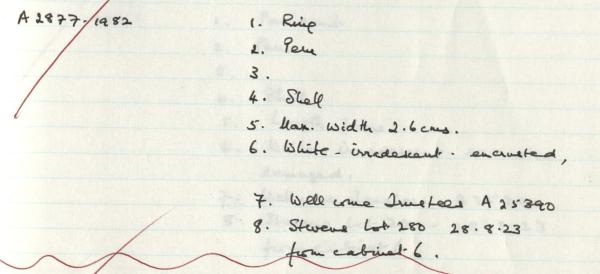 A 2877-1982
1. Ring
2. Peru
3.
4. Shell
5. Max. width 2.6 cms.
6. White - irredescent - encrusted,
7. Wellcome Trustees A 25390
8. Stevens Lot 280 28.8.23
from cabinet 6.